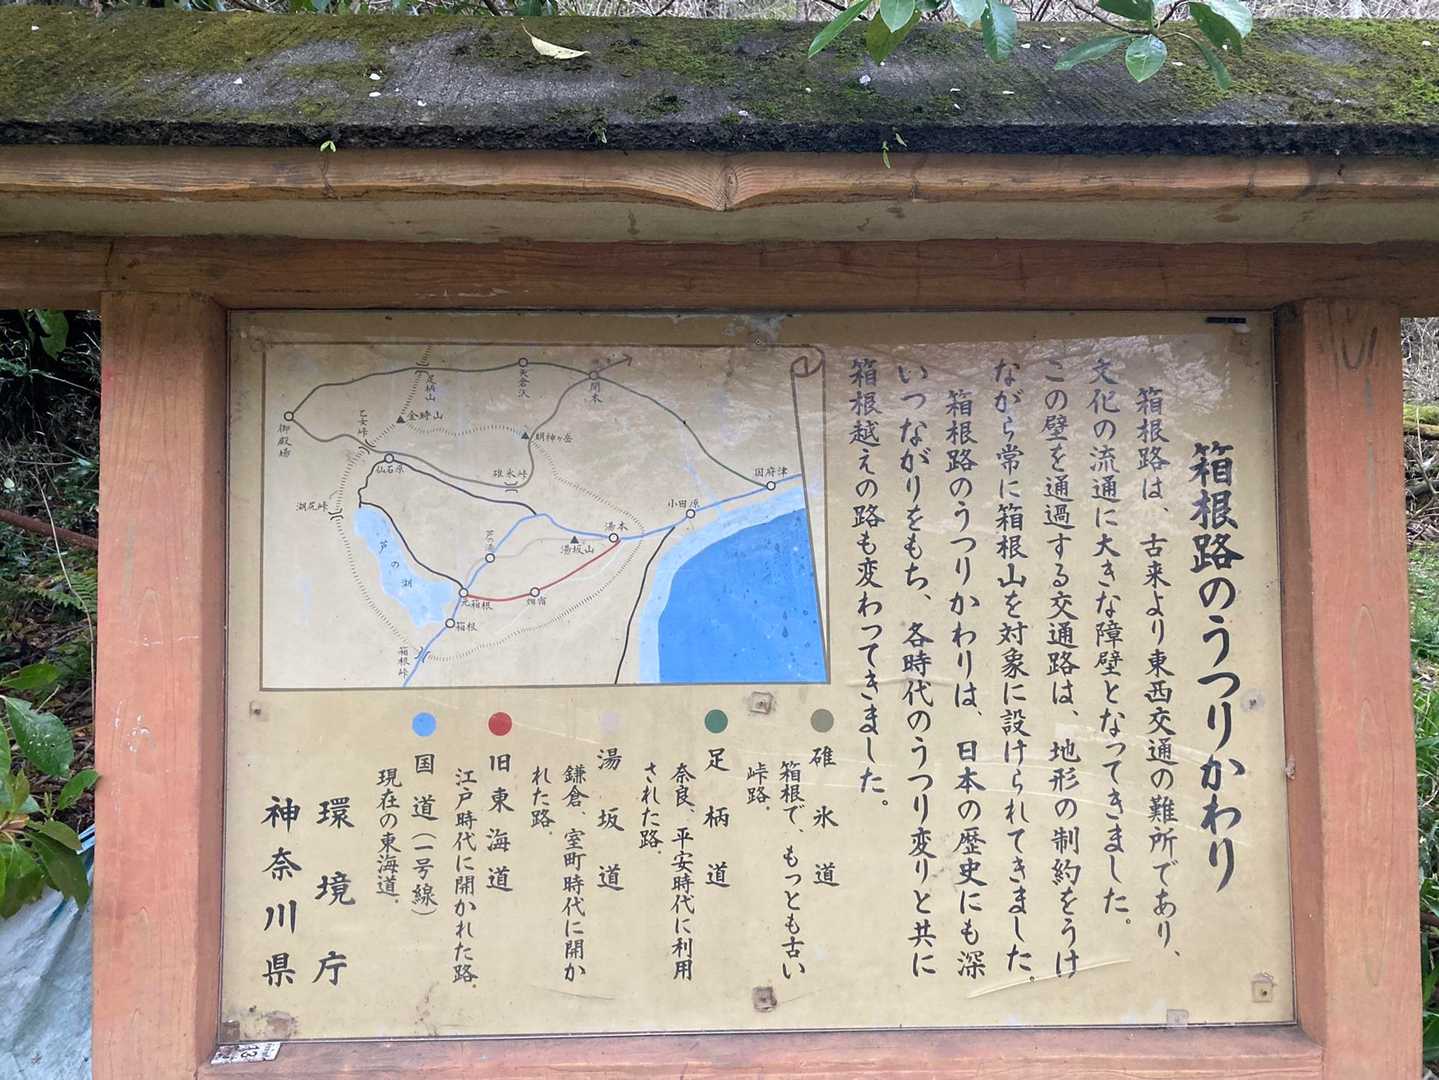 箱根路のうつりかわり
箱根路は、古来より東西交通の難所であり、
文化の流通に大きな障壁となってきました。
この壁を通過する交通路は、地形の制約をうけ
ながら常に箱根山を対象に設けられてきました。
箱根路のうつりかわりは、日本の歴史にも深
いつながりをもち、各時代のうつり変りと共に
箱根越えの路も変わってきました。
碓氷道
箱根で、もっとも古い
峠路.
足柄道
奈良、平安時代に利用
された路.
湯坂道
鎌倉、室町時代に開か
れた路.
旧東海道
江戸時代に開かれた路.
国道(一号線)
現在の東海道.
環境庁
神奈川県
御殿場
足柄山
矢倉沢
関本
乙女峠
金時山
明神ヶ岳
仙石原
碓氷峠
国府津
小田原
湖尻峠
芦の湖
芦の湯
湯坂山
湯本
元箱根
畑宿
箱根
箱根峠